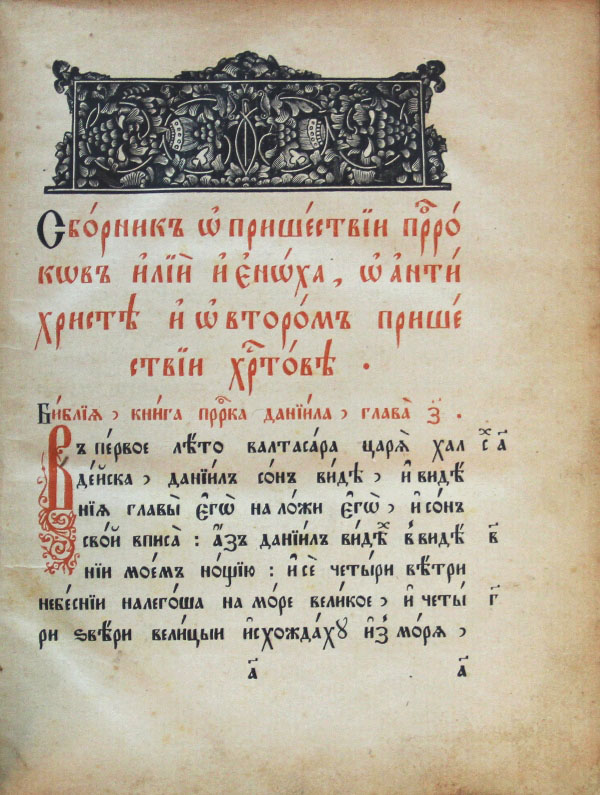 Сбо́рникъ ѡ прише́ствїи прⷪ҇ро́
кѡвъ и҆лїѝ и҆ є҆нѡ́ха, ѡ҆ а҆нти́
христѣ и҆ ѡ҆ второ́мъ прише́
ствїи хрⷭ҇то́вѣ .
Би́блїѧ, кни́га прⷪ҇ро́ка данїи́ла, глава̀ з҃ .
Въ пе́рвое лѣ́то валтаса́ра царѧ̀ хал хс а҃
де́йска, данїи́лъ со́нъ ви́дѣ, и҆ видѣ́
нїѧ главы̀ є҆гѡ̀ на ло́жи є҆гѡ̀, и҆ со́нъ
сво́й вписа̀ : а҆́зъ данїи́лъ ви́дѣхъ в видѣ́ в҃
нїи мое́мъ но́щїю : и҆ сѐ четы́ри вѣ́три
небе́снїи налего́ша на мо́ре вели́кое, и҆ четы́ г҃
ри ѕвѣ́ри вели́цыи и҆схожда́хꙋ и҆з̾ мо́рѧ,
а҃ а҃